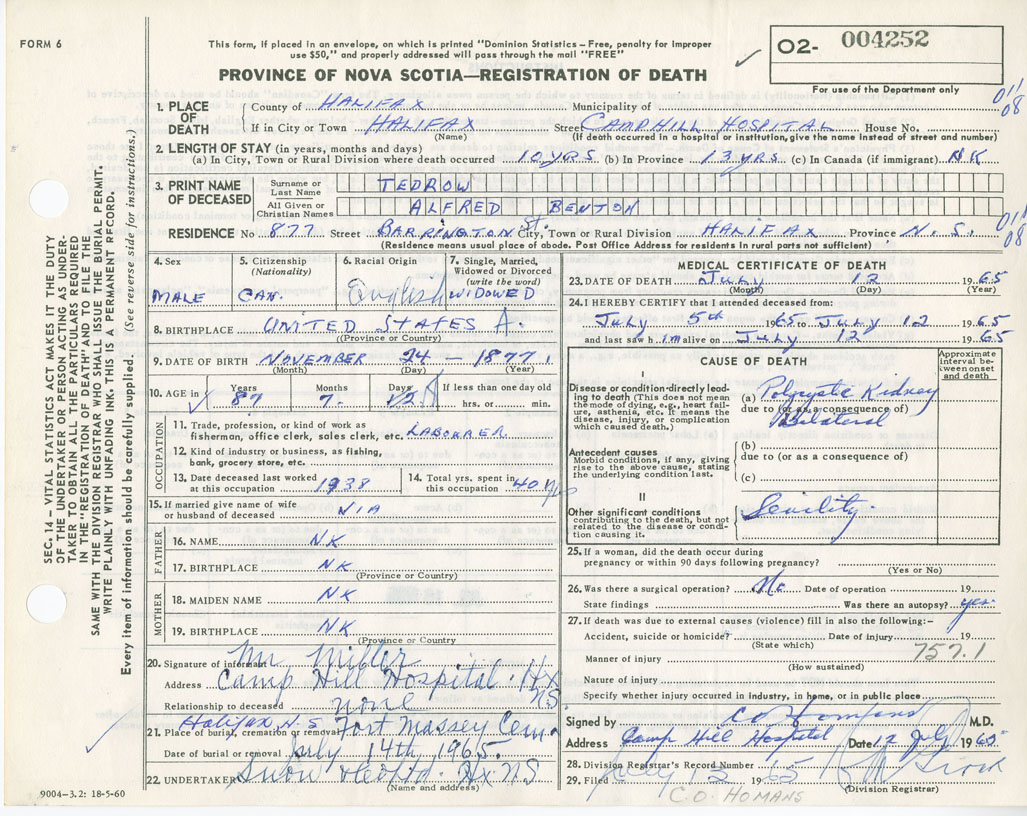 FORM 6
This form, if placed in an envelope, on which is printed "Dominion Statistics – Free, penalty for improper
use $50," and properly addressed will pass through the mail "FREE"
PROVINCE OF NOVA SCOTIA—REGISTRATION OF DEATH
02- 004252
For use of the Department only
01/08
1. PLACE OF DEATH
County of HALIFAX Municipality of
If in City or Town HALIFAX Street CAMP HILL HOSPITAL House No.
(Name) (If death occurred in a hospital or institution, give the name instead of street and number)
2. LENGTH OF STAY (in years, months and days)
(a) In City, Town or Rural Division where death occurred 10 YRS (b) In Province 13 YRS (c) In Canada (if immigrant) NK
3. PRINT NAME OF DECEASED
Surname or Last Name TEDROW
All Given or Christian Names ALFRED BENTON
RESIDENCE No 877 Street BARRINGTON St. City, Town or Rural Division HALIFAX Province N. S.
01/08
(Residence means usual place of abode. Post Office Address for residents in rural parts not sufficient)
4. Sex MALE
5. Citizenship (Nationality) CAN.
6. Racial Origin English
7. Single, Married, Widowed or Divorced (write the word) WIDOWED
8. BIRTHPLACE UNITED STATES A.
(Province or Country)
9. DATE OF BIRTH NOVEMBER 24 - 1877
(Month) (Day) (Year)
10. AGE in Years 87 Months 7 Days If less than one day old hrs. or min.
OCCUPATION
11. Trade, profession, or kind of work as
fisherman, office clerk, sales clerk, etc. LABORRER
12. Kind of industry or business, as fishing,
bank, grocery store, etc.
13. Date deceased last worked
at this occupation 1938
14. Total yrs. spent in
this occupation 40 Yrs
15. If married give name of wife
or husband of deceased N/A
FATHER
16. NAME NK
17. BIRTHPLACE NK
(Province or Country)
MOTHER
18. MAIDEN NAME NK
19. BIRTHPLACE NK
(Province or Country)
20. Signature of informant Mr Miller
Address Camp Hill Hospital. Hx NS
Relationship to deceased none
Halifax N.S
21. Place of burial, cremation or removal Fort Massey Cem.
Date of burial or removal July 14th 1965.
22. UNDERTAKER Snow Hx NS
(Name and address)
9004–3.2: 18-5-60
MEDICAL CERTIFICATE OF DEATH
23. DATE OF DEATH July 12 1965
(Month) (Day) (Year)
24. I HEREBY CERTIFY that I attended deceased from:
July 5th 1965 to July 12 1965
and last saw him alive on July 12 1965
CAUSE OF DEATH
Approximate interval between onset and death
I
Disease or condition directly leading to death (This does not mean the mode of dying, e.g., heart failure, asthenia, etc. It means the disease, injury, or complication which caused death.)
(a) Polycystic Kidney
due to (or as a consequence of)
Bilateral
Antecedent causes
Morbid conditions, if any, giving rise to the above cause, stating the underlying condition last.
(b)
due to (or as a consequence of)
(c)
II
Other significant conditions
contributing to the death, but not related to the disease or condition causing it.
Senility.
25. If a woman, did the death occur during
pregnancy or within 90 days following pregnancy?
(Yes or No)
26. Was there a surgical operation? No Date of operation 19
State findings Was there an autopsy? yes
27. If death was due to external causes (violence) fill in also the following:–
Accident, suicide or homicide? Date of injury 19
(State which)
757.1
Manner of injury
(How sustained)
Nature of injury
Specify whether injury occurred in industry, in home, or in public place
Signed by C O Homans M.D.
Address Camp Hill Hospital Date 12 July 1965
28. Division Registrar's Record Number
29. Filed July 13 1965
(Division Registrar)
C.O. HOMANS
SEC. 14 – VITAL STATISTICS ACT MAKES IT THE DUTY
OF THE UNDERTAKER OR PERSON ACTING AS UNDER-
TAKER TO OBTAIN ALL THE PARTICULARS REQUIRED
IN THE "REGISTRATION OF DEATH" AND TO FILE THE
SAME WITH THE DIVISION REGISTRAR WHO SHALL ISSUE THE BURIAL PERMIT.
WRITE PLAINLY WITH UNFADING INK. THIS IS A PERMANENT RECORD.
Every item of information should be carefully supplied. (See reverse side for instructions.)